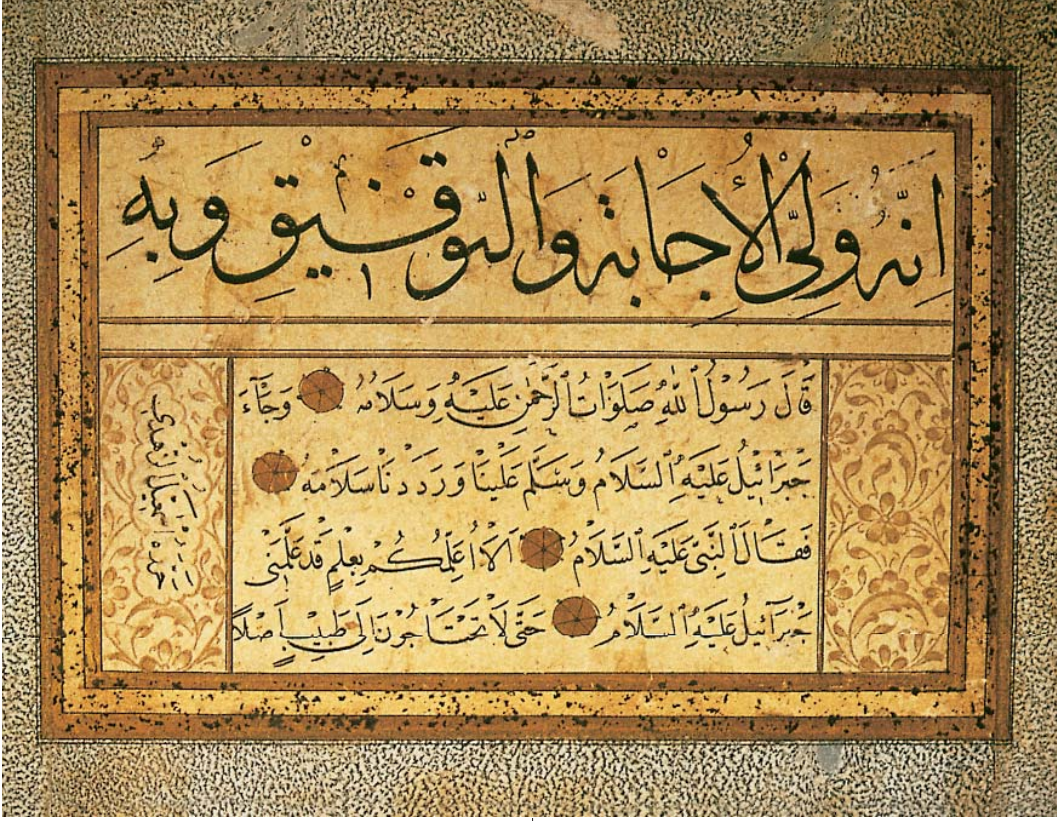 اِنَّهُ وَلِىُّ الْاِجَابَةِ وَالتَّوْفِيْقِ وَبِهِ
قَالَ رَسُوْلُ اللّٰهِ صَلَوَاتُ الرَّحْمٰنِ عَلَيْهِ وَسَلَامُهُ وَجَآءَ
جَبْرَائِيْلُ عَلَيْهِ السَّلَامُ وَسَلَّمَ عَلَيْنَا وَرَدَدْنَا سَلَامَهُ
فَقَالَ النَّبِىُّ عَلَيْهِ السَّلَامُ اَلَا اُعَلِّمُكُمْ بِعِلْمٍ قَدْ عَلَّمَنِى
جَبْرَآئِيْلُ عَلَيْهِ السَّلَامُ حَتّٰى لَا تَحْتَاجُوْنَ اِلٰى طَبِيْبٍ اَصْلًا